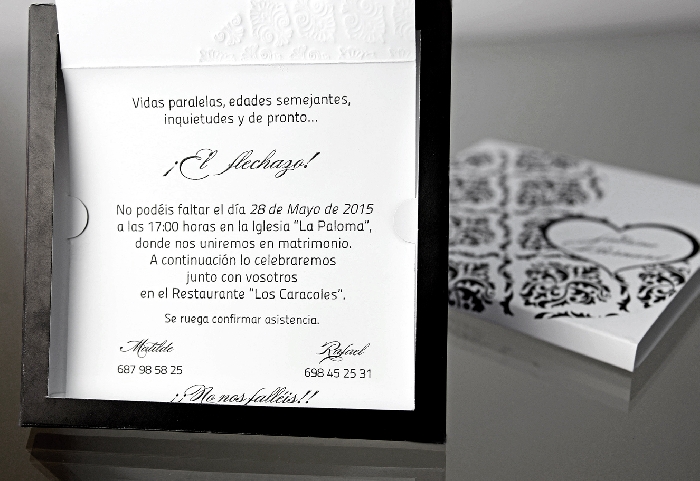 Vidas paralelas, edades semejantes,
inquietudes y de pronto...
¡El flechazo!
No podéis faltar el día 28 de Mayo de 2015
a las 17:00 horas en la Iglesia "La Paloma",
donde nos uniremos en matrimonio.
A continuación lo celebraremos
junto con vosotros
en el Restaurante "Los Caracoles".
Se ruega confirmar asistencia.
Matilde Rafael
687 98 58 25 698 45 25 31
¡¡No nos falléis!!